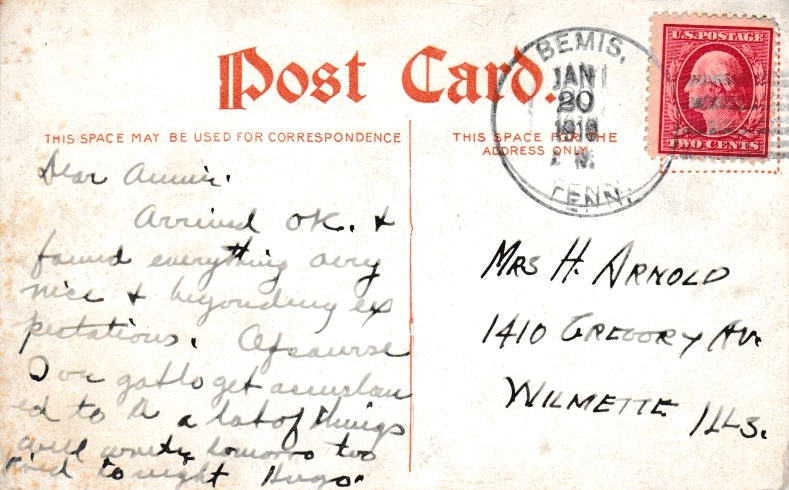 Post Card.
THIS SPACE MAY BE USED FOR CORRESPONDENCE
THIS SPACE FOR THE
ADDRESS ONLY
BEMIS,
JAN
20
1910
M.
TENN.
U.S. POSTAGE
TWO CENTS
Dear Annie.
Arrived OK. &
found everything very
nice & beyond my ex
pectations. Of course
I've got to get acustom
ed to a lot of things
will write tomorro too
tired tonight Hugo
Mrs H. ARNOLD
1410 GREGORY AV.
WILMETTE ILLS.